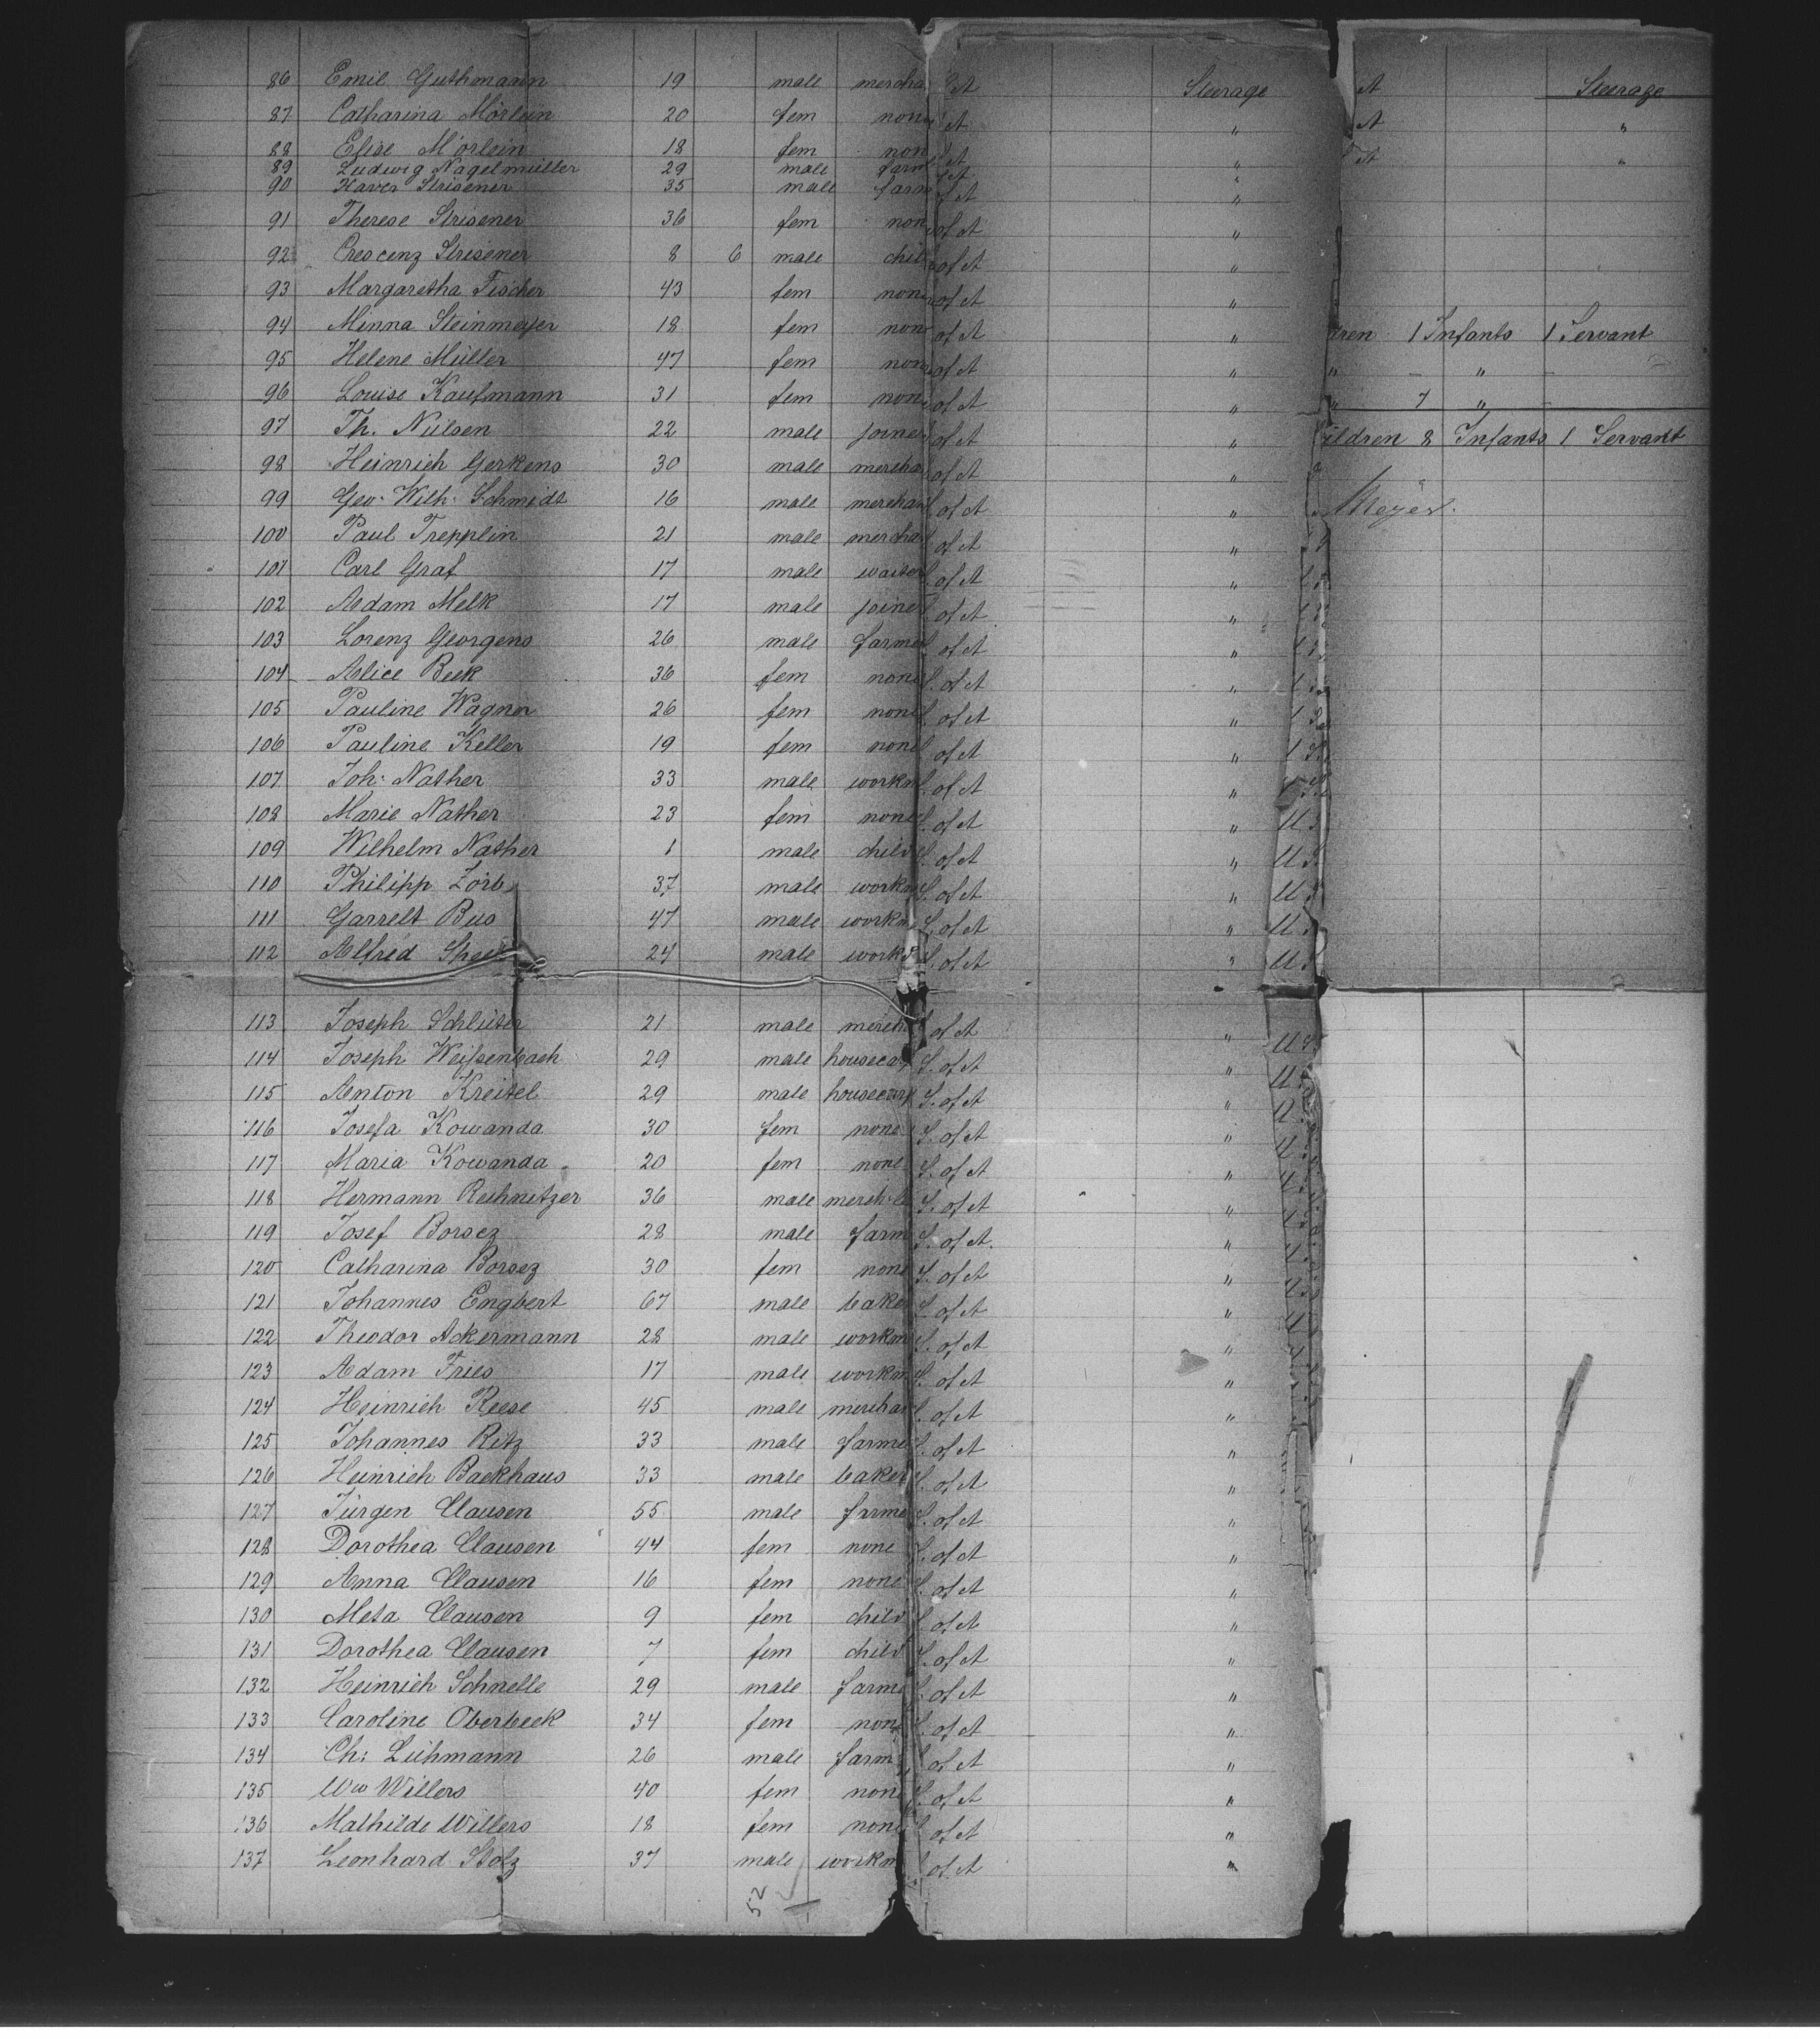 86 Emil Guthmann 19 male mercha A Steerage A Steerage
87 Catharina Mörlein 20 fem none A " A "
88 Elise Mörlein 18 fem non A " A "
89 Ludwig Nagelmüller 29 male farm of A "
90 Xaver Strisener 35 male farm of A "
91 Therese Strisener 36 fem non of A "
92 Crescenz Strisener 8 6 male chil of A "
93 Margaretha Fischer 43 fem none of A "
94 Minna Steinmeyer 18 fem non of A " dren 1 Infants 1 Servant
95 Helene Müller 47 fem non of A " " - " -
96 Louise Kaufmann 31 fem non of A " " 7 " -
97 Th. Nülsen 22 male joiner of A " ildren 8 Infants 1 Servant
98 Heinrich Gerkens 30 male mercha of A "
99 Geo. Wilh. Schmidt 16 male merchan of A " Meyer.
100 Paul Trepplin 21 male merchan of A "
101 Carl Graf 17 male waiter of A "
102 Adam Melk 17 male joine of A "
103 Lorenz Georgens 26 male farme of A "
104 Alice Beek 36 fem none S. of A "
105 Pauline Wagner 26 fem none S. of A "
106 Pauline Keller 19 fem none of A "
107 Joh: Nather 33 male workm S. of A "
108 Marie Nather 23 fem none S. of A " U.
109 Wilhelm Nather 1 male child S. of A " U S
110 Philipp Zörb 37 male workm S. of A " U S
111 Garrelt Bus 47 male workm S. of A " U.
112 Alfred 24 male work S. of A " U.
113 Joseph Schlüter 21 male merch S. of A " U S
114 Joseph Weißenbach 29 male housecar S. of A " U.
115 Anton Kreitel 29 male housecarp S. of A "
116 Josefa Kowanda 30 fem none S. of A "
117 Maria Kowanda 20 fem none S. of A "
118 Hermann Reihnitzer 36 male merch S. of A "
119 Josef Borsez 28 male farm S. of A. "
120 Catharina Borsez 30 fem none S. of A "
121 Johannes Engbert 67 male bake S. of A "
122 Theodor Ackermann 28 male workm S. of A "
123 Adam Fries 17 male workm S. of A "
124 Heinrich Reese 45 male merchan S. of A "
125 Johannes Ritz 33 male farme S. of A "
126 Heinrich Backhaus 33 male baker S. of A "
127 Jürgen Clausen 55 male farme S. of A "
128 Dorothea Clausen 44 fem none S. of A "
129 Anna Clausen 16 fem none S. of A "
130 Meta Clausen 9 fem child S. of A "
131 Dorothea Clausen 7 fem child S. of A "
132 Heinrich Schnelle 29 male farme S. of A "
133 Caroline Oberbeck 34 fem none S. of A "
134 Ch: Lühmann 26 male farm S. of A "
135 Ww Willers 40 fem none S. of A "
136 Mathilde Willers 18 fem none S. of A "
137 Leonhard Stolz 37 male workm S. of A "
52